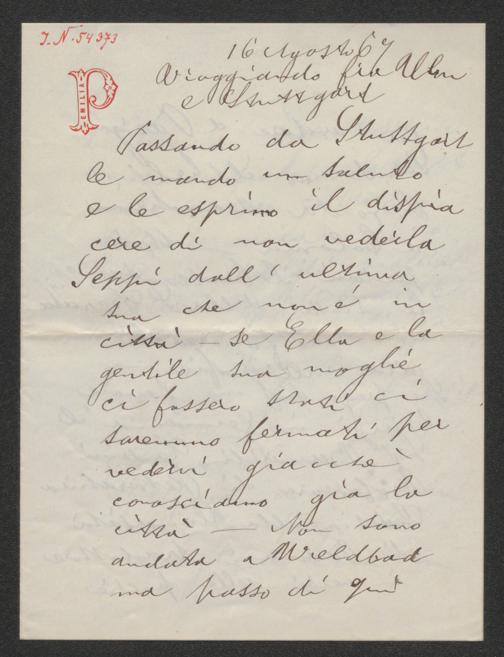 J.N. 54373
16 Agosto 67
Viaggiando fra Ulm
e Stuttgart
P
EMILIA
Passando da Stuttgart
le mando un saluto
e le esprimo il dispia
cere di non vederla
Seppi dall' ultima
sua che non é in
città – se Ella e la
gentile sua moglie
ci fossero stati ci
saremmo fermati per
vedervi giacché
conosciamo già la
città – Non sono
andata a Wieldbad
ma passo di quì